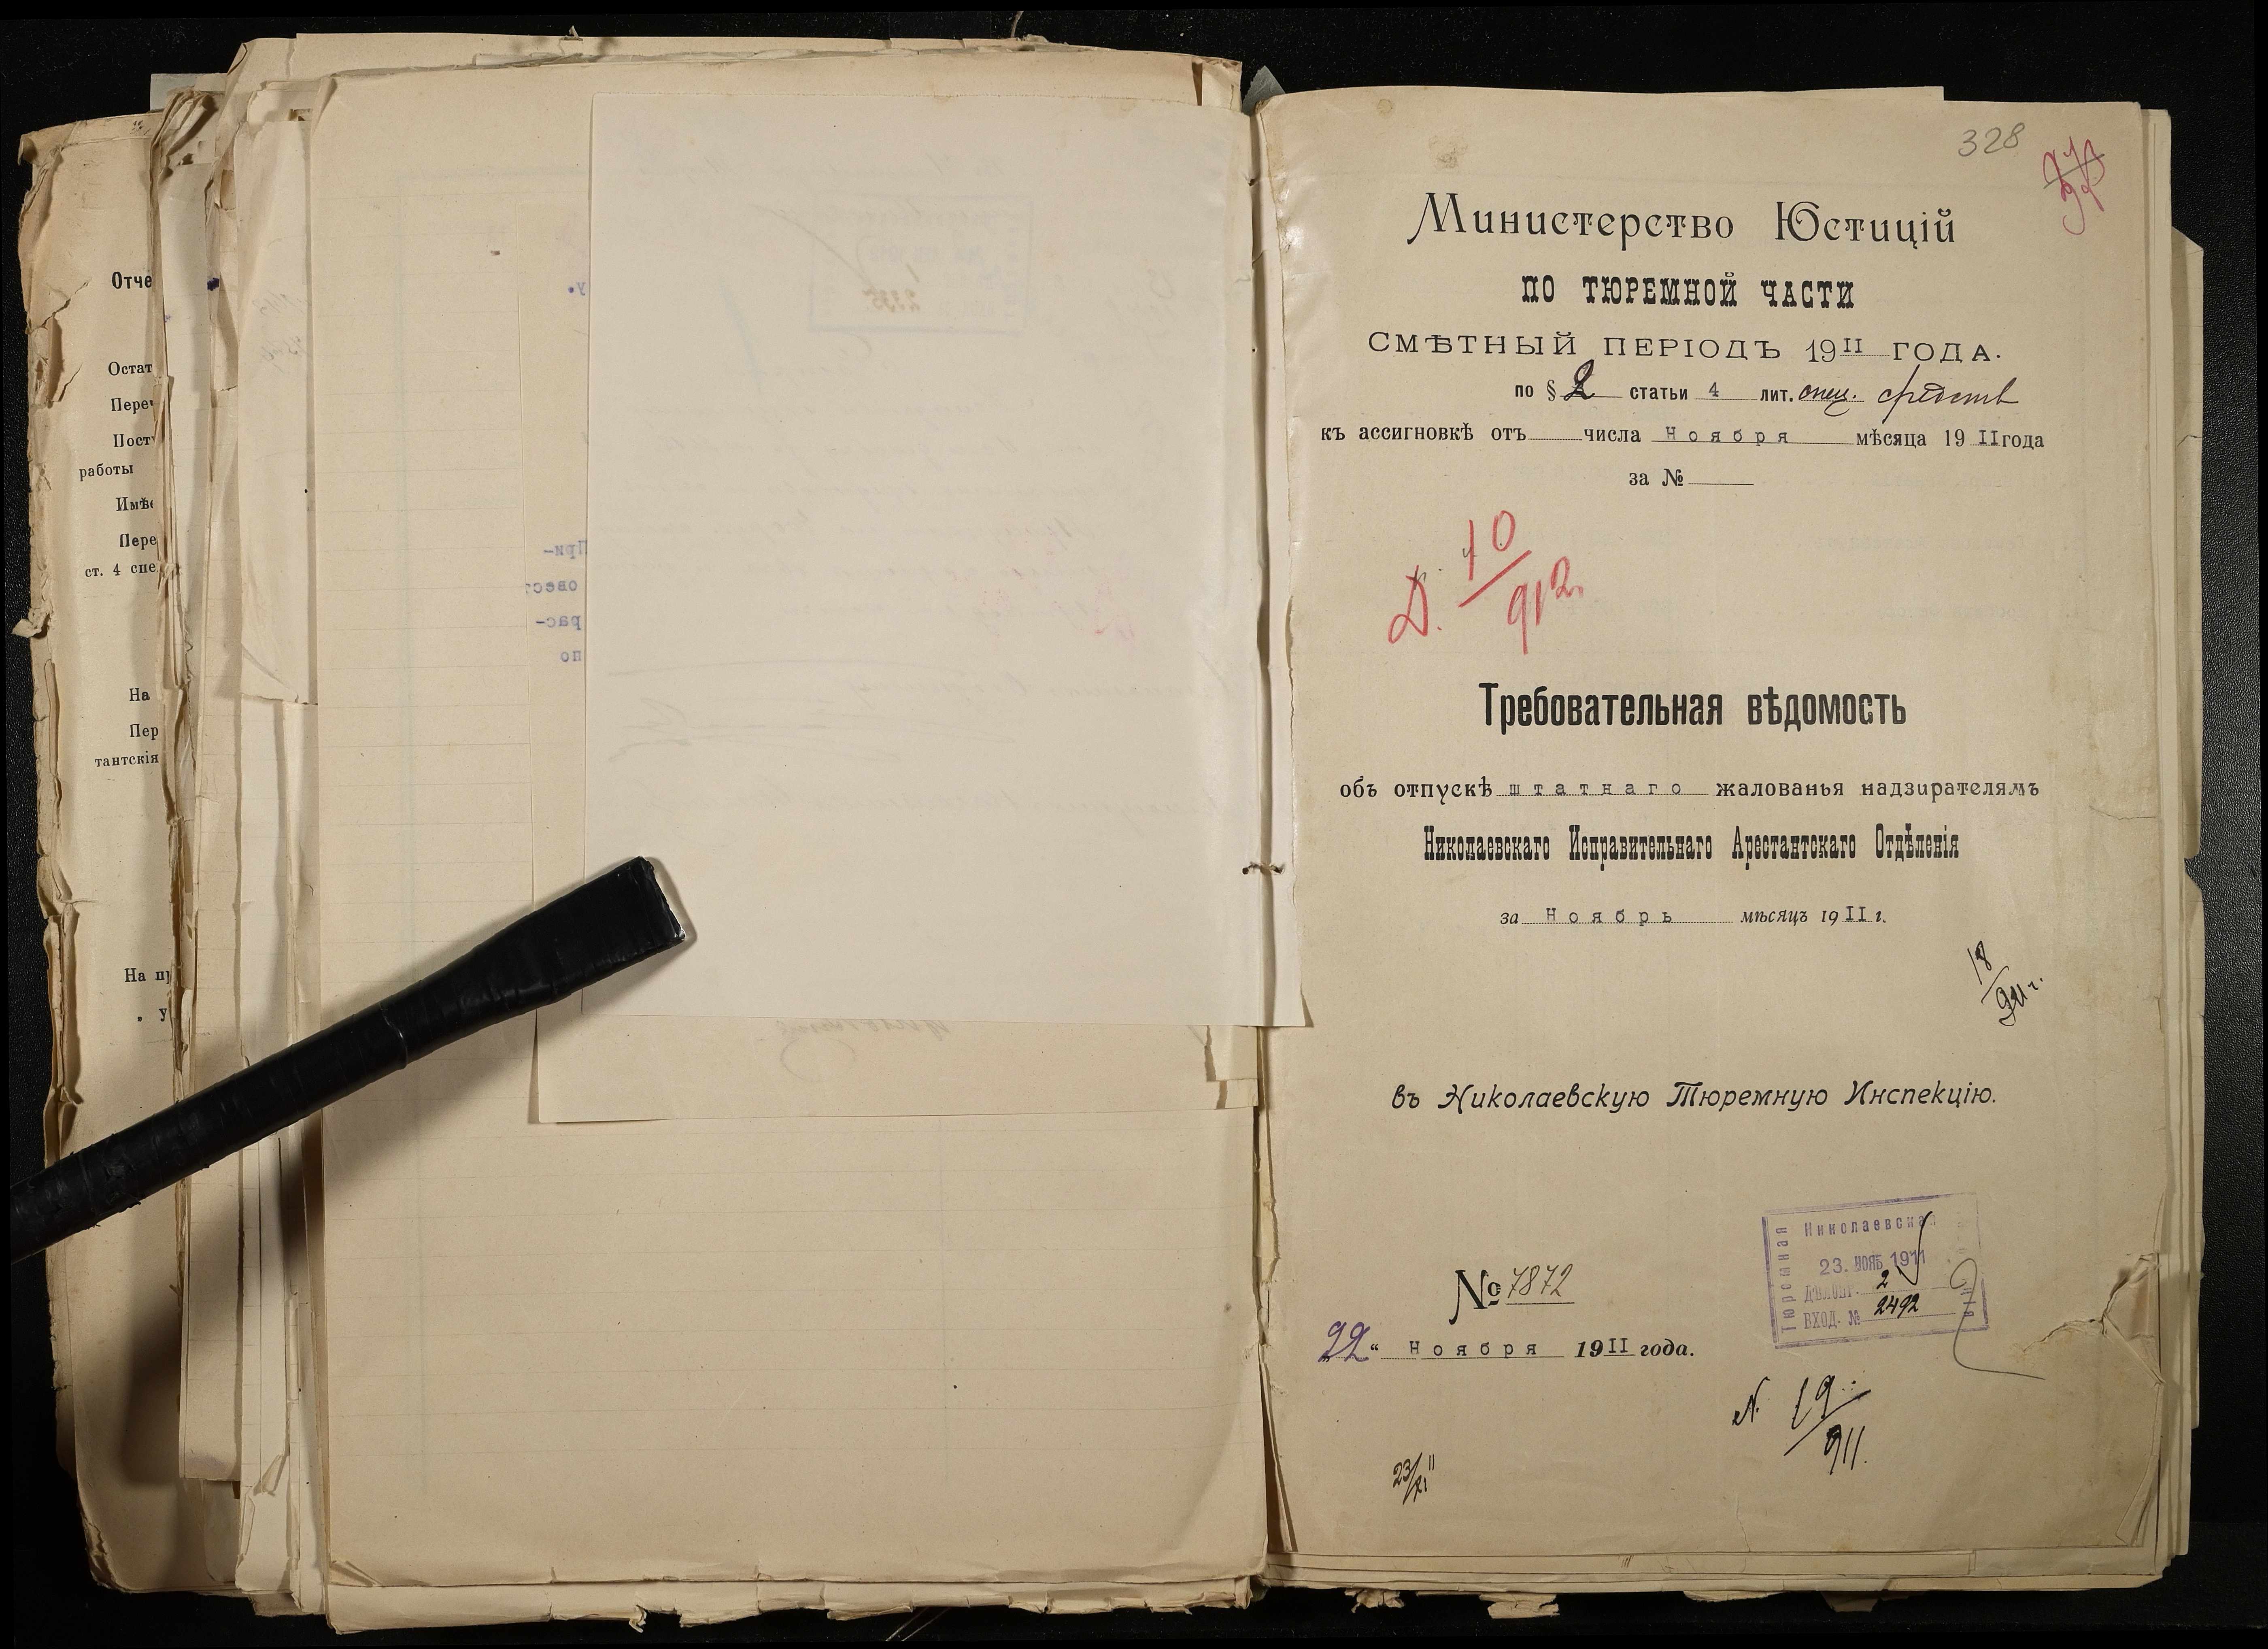 Отче
Остат
Переч
Пост
работы
Имѣе
Пере
ст. 4 спе
На
Пер
тантскія
На пр
" У
328
Министерство Юстицій
ПО ТЮРЕМНОЙ ЧАСТИ
СМѢТНЫЙ ПЕРІОДЪ 19II ГОДА.
по § 2 статьи 4 лит. спец. средств
къ ассигновкѣ отъ числа Ноября мѣсяца 19 II года
за №
Д. 10/912.
Требовательная вѣдомость
объ отпускѣ штатнаго жалованья надзирателямъ
Николаевскаго Исправительнаго Арестантскаго Отдѣленія
за Ноябрь мѣсяцъ 19 II г.
18/911 г.
въ Николаевскую Тюремную Инспекцію.
Тюремная
Николаевская
23. НОЯБ 1911
ДѢЛОПР. 2
ВХОД. № 2492
№ 7872
22" Ноября 19 II года.
N. 19/911.
23/XI 11